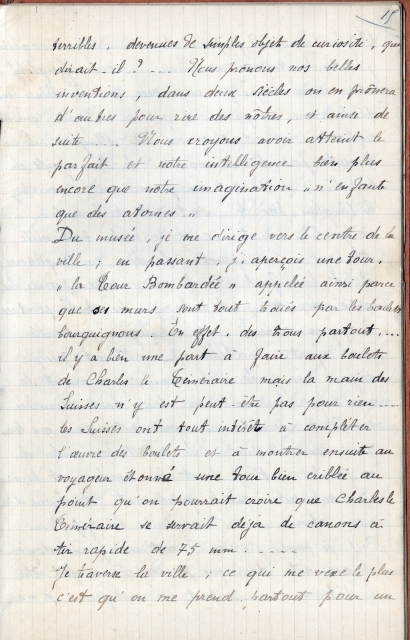 15
terribles, devenues de simples objets de curiosité, que
dirait-il ? _... Nous prônons nos belles
inventions, dans deux siècles on en prônera
d'autres pour rire des nôtres, et ainsi de
suite .... Nous croyons avoir atteint le
parfait et notre intelligence bien plus
encore que notre imagination "n'enfante
que des atomes"
Du musée, je me dirige vers le centre de la
ville ; en passant, j'aperçois une tour,
"la Tour Bombardée" appelée ainsi parce
que ses murs sont tout troués par les boulets
bourguignons. En effet, des trous partout....
il y a bien une part à faire aux boulets
de Charles le Téméraire mais la main des
Suisses n'y est peut-être pas pour rien....
les Suisses ont tout intérêt à compléter
l'œuvre des boulets et à montrer ensuite au
voyageur étonné une tour bien criblée au
point qu'on pourrait croire que Charles le
Téméraire se servait déjà de canons à
tir rapide de 75 mm.....
Je traverse la ville ; ce qui me vexe le plus
c'est qu'on me prend partout pour un